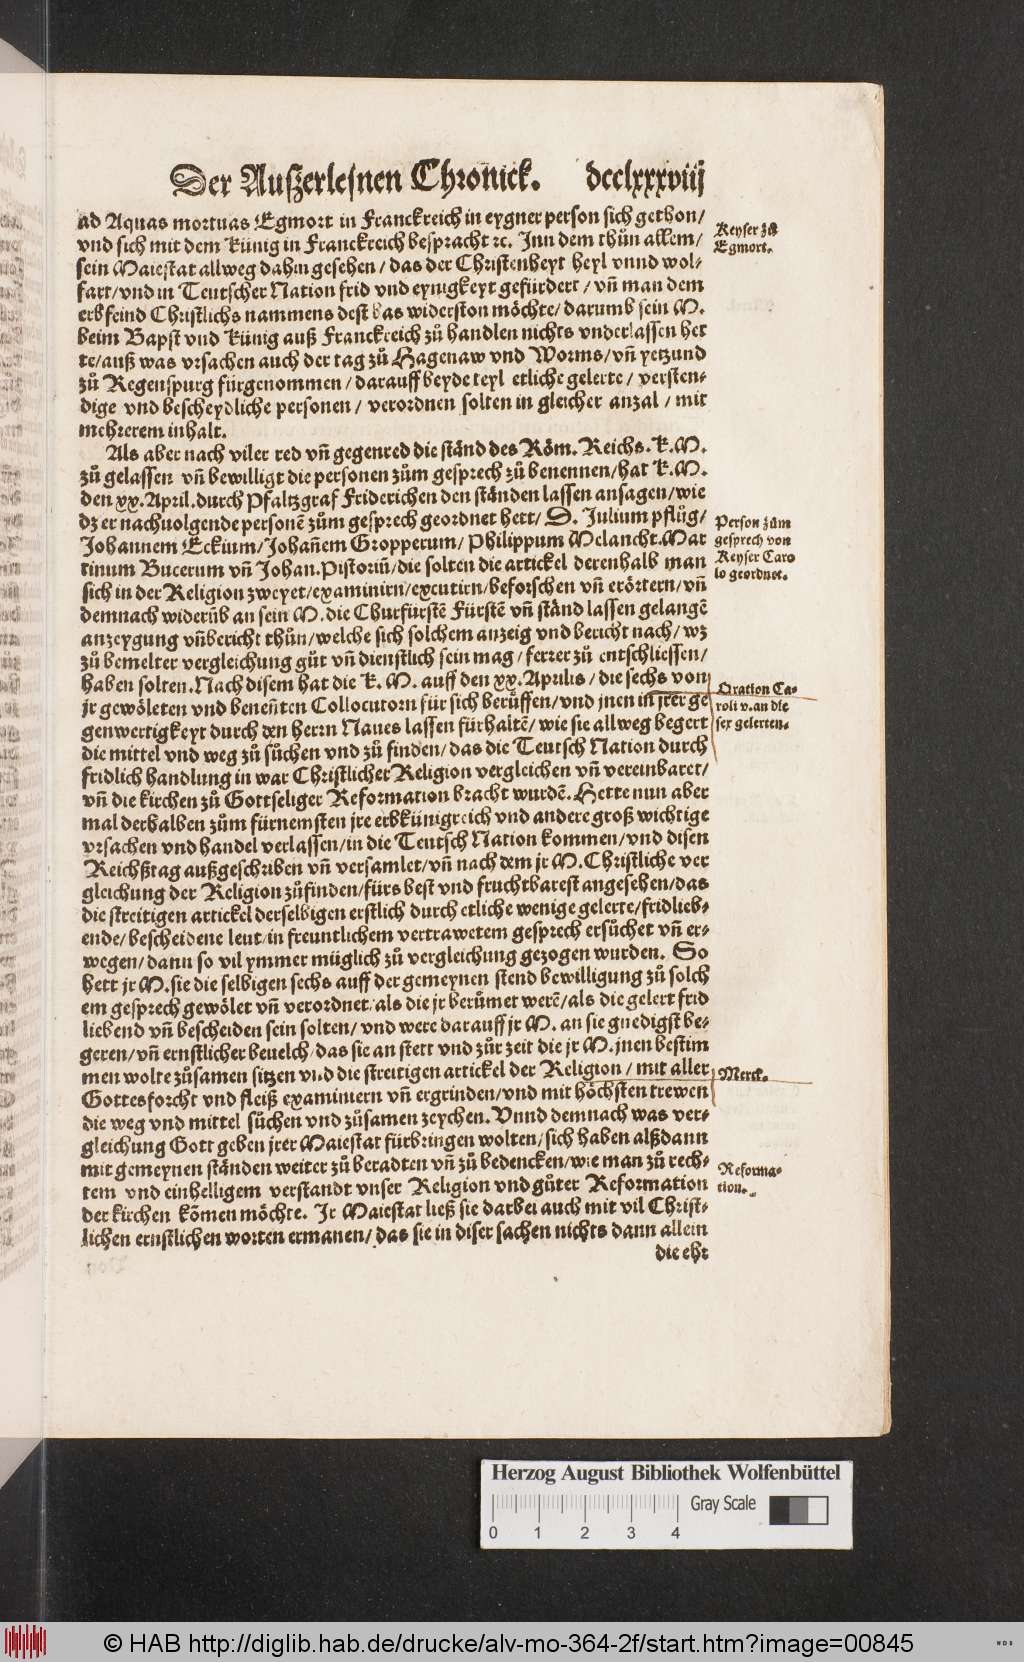 Der Außerlesnen Chronick. dcclxxxviij
ad Aquas mortuas Egmort in Franckreich in eygner person sich gethon/
vnd sich mit dem Künig in Franckreich bespracht ꝛc. Inn dem thůn allem/
sein Maiestat allweg dahin gesehen / das der Christenheyt heyl vnnd wol-
fart/vnd in Teutscher Nation frid vnd eynigkeyt gefürdert / vñ man dem
erbfeind Christlichs nammens dest bas widerston möchte/darumb sein M.
beim Bapst vnd Künig auß Franckreich zů handlen nichts vnderlassen het
te/auß was vrsachen auch der tag zů Hagenaw vnd Worms/vñ yetzund
zů Regenspurg fürgenommen / darauff beyde teyl etliche gelerte / versten-
dige vnd bescheydliche personen / verordnen solten in gleicher anzal / mit
mehrerem inhalt.
Als aber nach viler red vñ gegenred die stånd des Röm. Reichs.K.M.
zů gelassen vñ bewilligt die personen zům gesprech zů benennen/hat K.M.
den xx.April.durch Pfaltzgraf Friderichen den stånden lassen ansagen/wie
dz er nachuolgende personē zům gesprech geordnet hett/ D. Julium pflůg/
Johannem Eckium/Johañem Gropperum/ Philippum Melancht.Mar
tinum Bucerum vñ Johan.Pistoriũ/die solten die artickel derenhalb man
sich in der Religion zweyet/examinirn/excutirn/beforschen vñ erörtern/vñ
demnach widerũb an sein M.die Churfürstē Fürstē vñ stånd lassen gelangē
anzeygung vñbericht thůn/welche sich solchem anzeig vnd bericht nach/wz
zů bemelter vergleichung gůt vñ dienstlich sein mag/ferrer zů entschliessen/
haben solten.Nach disem hat die K.M. auff den xx.Aprilis/die sechs von
jr gewöleten vnd beneñten Collocutorn für sich berůffen/vnd jnen in jrer ge
genwertigkeyt durch den herrn Naues lassen fürhaltē/wie sie allweg begert
die mittel vnd weg zů sůchen vnd zů finden/das die Teutsch Nation durch
fridlich handlung in war Christlicher Religion vergleichen vñ vereinbaret/
vñ die kirchen zů Gottseliger Reformation bracht wurdē.Hette nun aber
mal derhalben zům fürnemsten jre erbkünigreich vnd andere groß wichtige
vrsachen vnd handel verlassen/in die Teutsch Nation kommen/vnd disen
Reichßtag außgeschriben vñ versamlet/vñ nach dem jr M.Christliche ver
gleichung der Religion zůfinden/fürs best vnd fruchtbarest angesehen/das
die streitigen artickel derselbigen erstlich durch etliche wenige gelerte/fridlieb-
ende/bescheidene leut/in freuntlichem vertrawetem gesprech ersůchet vñ er-
wegen/dann so vil ymmer müglich zů vergleichung gezogen wurden. So
hett jr M.sie die selbigen sechs auff der gemeynen stend bewilligung zů solch
em gesprech gewölet vñ verordnet/als die jr berůmet werē/als die gelert frid
liebend vñ bescheiden sein solten/vnd were darauff jr M. an sie gnedigst be-
geren/vñ ernstlicher beuelch/das sie an stett vnd zůr zeit die jr M.jnen bestim
men wolte zůsamen sitzen vnd die streitigen artickel der Religion/mit aller
Gottesforcht vnd fleiß examiniern vñ ergrinden/vnd mit höchsten trewen
die weg vnd mittel sůchen vnd zůsamen zeychen.Vnnd demnach was ver-
gleichung Gott geben jrer Maiestat fürbringen wolten/sich haben alßdann
mit gemeynen stånden weiter zů beradten vñ zů bedencken/wie man zů rech-
tem vnd einhelligem verstandt vnser Religion vnd gůter Reformation
der kirchen kõmen möchte. Ir Maiestat ließ sie darbei auch mit vil Christ-
lichen ernstlichen worten ermanen/das sie in diser sachen nichts dann allein
die ehr
Keyser zů
Egmort.
Person zům
gesprech von
Keyser Caro
lo geordnet.
Oration Ca-
roli v.an die
sex gelerten.
Merck.
Reforma-
tion.
Herzog August Bibliothek Wolfenbüttel
Gray Scale
0 1 2 3 4
© HAB http://diglib.hab.de/drucke/alv-mo-364-2f/start.htm?image=00845